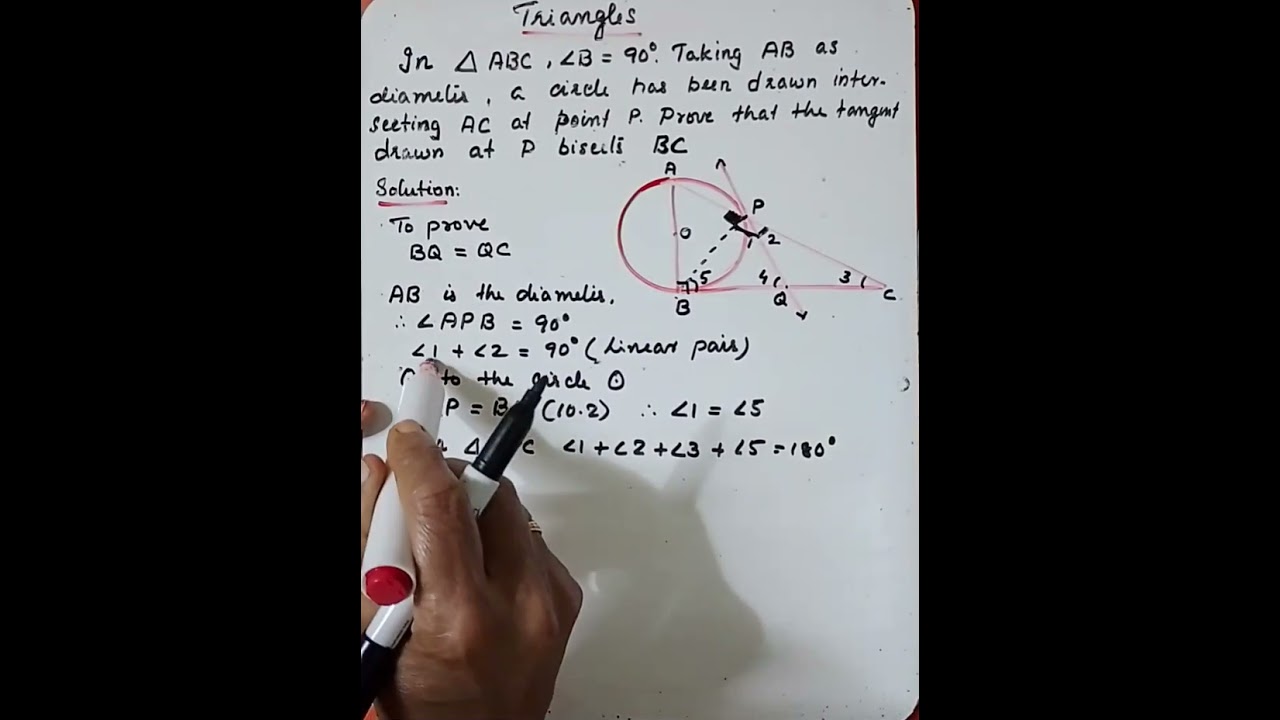 Triangles
In △ ABC, ∠B = 90°. Taking AB as
diametis, a circle has been drawn inter-
secting AC at point P. Prove that the tangent
drawn at P bisects BC
Solution:
To prove
BQ = QC
A
P
O
2
1
5
4
3
B
Q
C
AB is the diametis,
∴ ∠APB = 90°
∠1 + ∠2 = 90° (Linear pair)
to the circle O
P = B (10.2) ∴ ∠1 = ∠5
△ C ∠1 + ∠2 + ∠3 + ∠5 = 180°